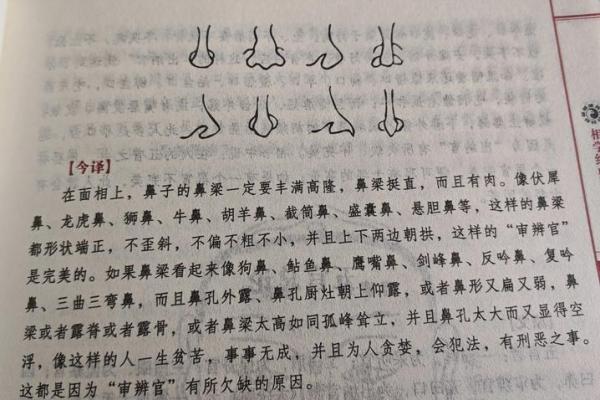 【今译】
在面相上，鼻子的鼻梁一定要丰满高隆，鼻梁挺直，而且有肉。像伏犀
鼻、龙虎鼻、狮鼻、牛鼻、胡羊鼻、截筒鼻、盛囊鼻、悬胆鼻等，这样的鼻梁
都形状端正，不歪斜，不偏不粗不小，并且上下两边朝拱，这样的“审辨官”
是完美的。如果鼻梁看起来像狗鼻、鲇鱼鼻、鹰嘴鼻、剑峰鼻、反吟鼻、复吟
鼻、三曲三弯鼻，而且鼻孔外露、鼻孔厨灶朝上仰露，或者鼻形又扁又弱，鼻
梁或者露脊或者露骨，或者鼻梁太高如同孤峰耸立，并且鼻孔太大而又显得空
浮，像这样的人一生贫苦，事事无成，并且为人贪婪，会犯法，有刑恶之事。
这都是因为“审辨官”有所欠缺的原因。
相学